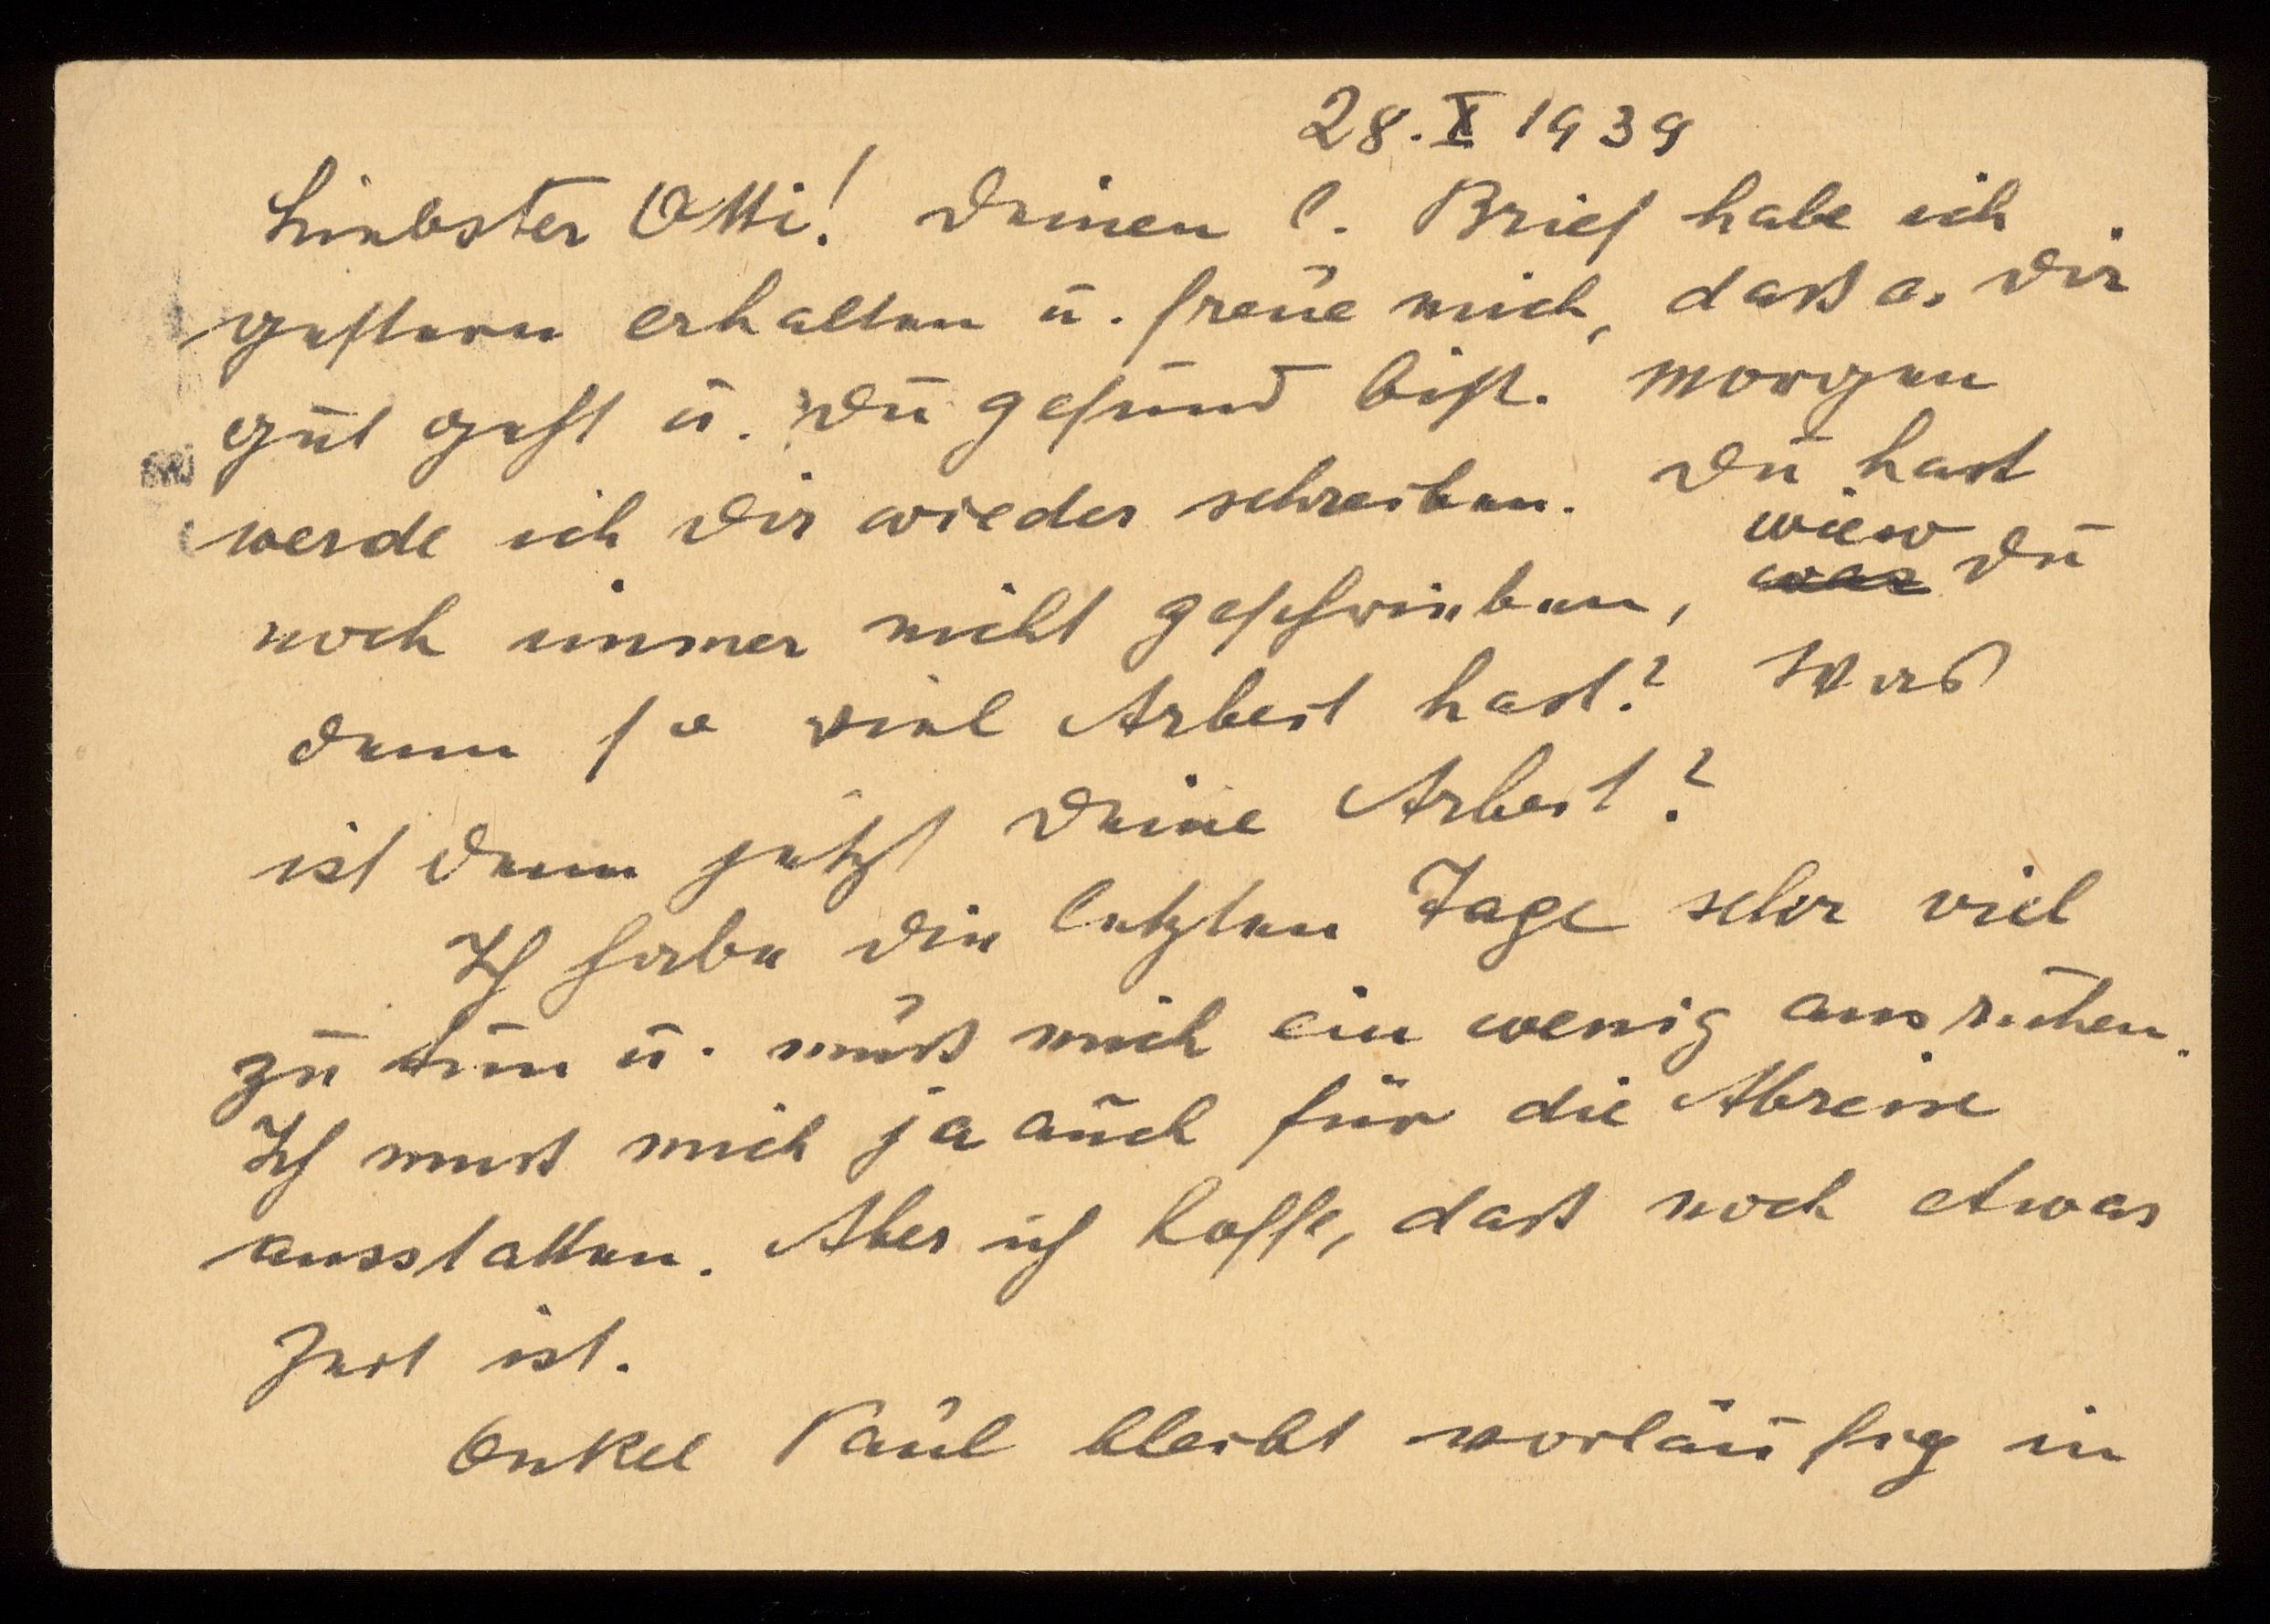 28. X 1939
Liebster Otti! Deinen l. Brief habe ich
gestern erhalten u. freue mich, daß es Dir
gut geht u. Du gesund bist. Morgen
werde ich Dir wieder schreiben. Du hast
noch immer nicht geschrieben, wieso Du
denn so viel Arbeit hast? Was
ist denn jetzt Deine Arbeit?
Ich habe die letzten Tage sehr viel
zu tun u. muß mich ein wenig ausruhen.
Ich muß mich ja auch für die Abreise
ausstatten. Aber ich hoffe, daß noch etwas
Zeit ist.
Onkel Paul bleibt vorläufig in